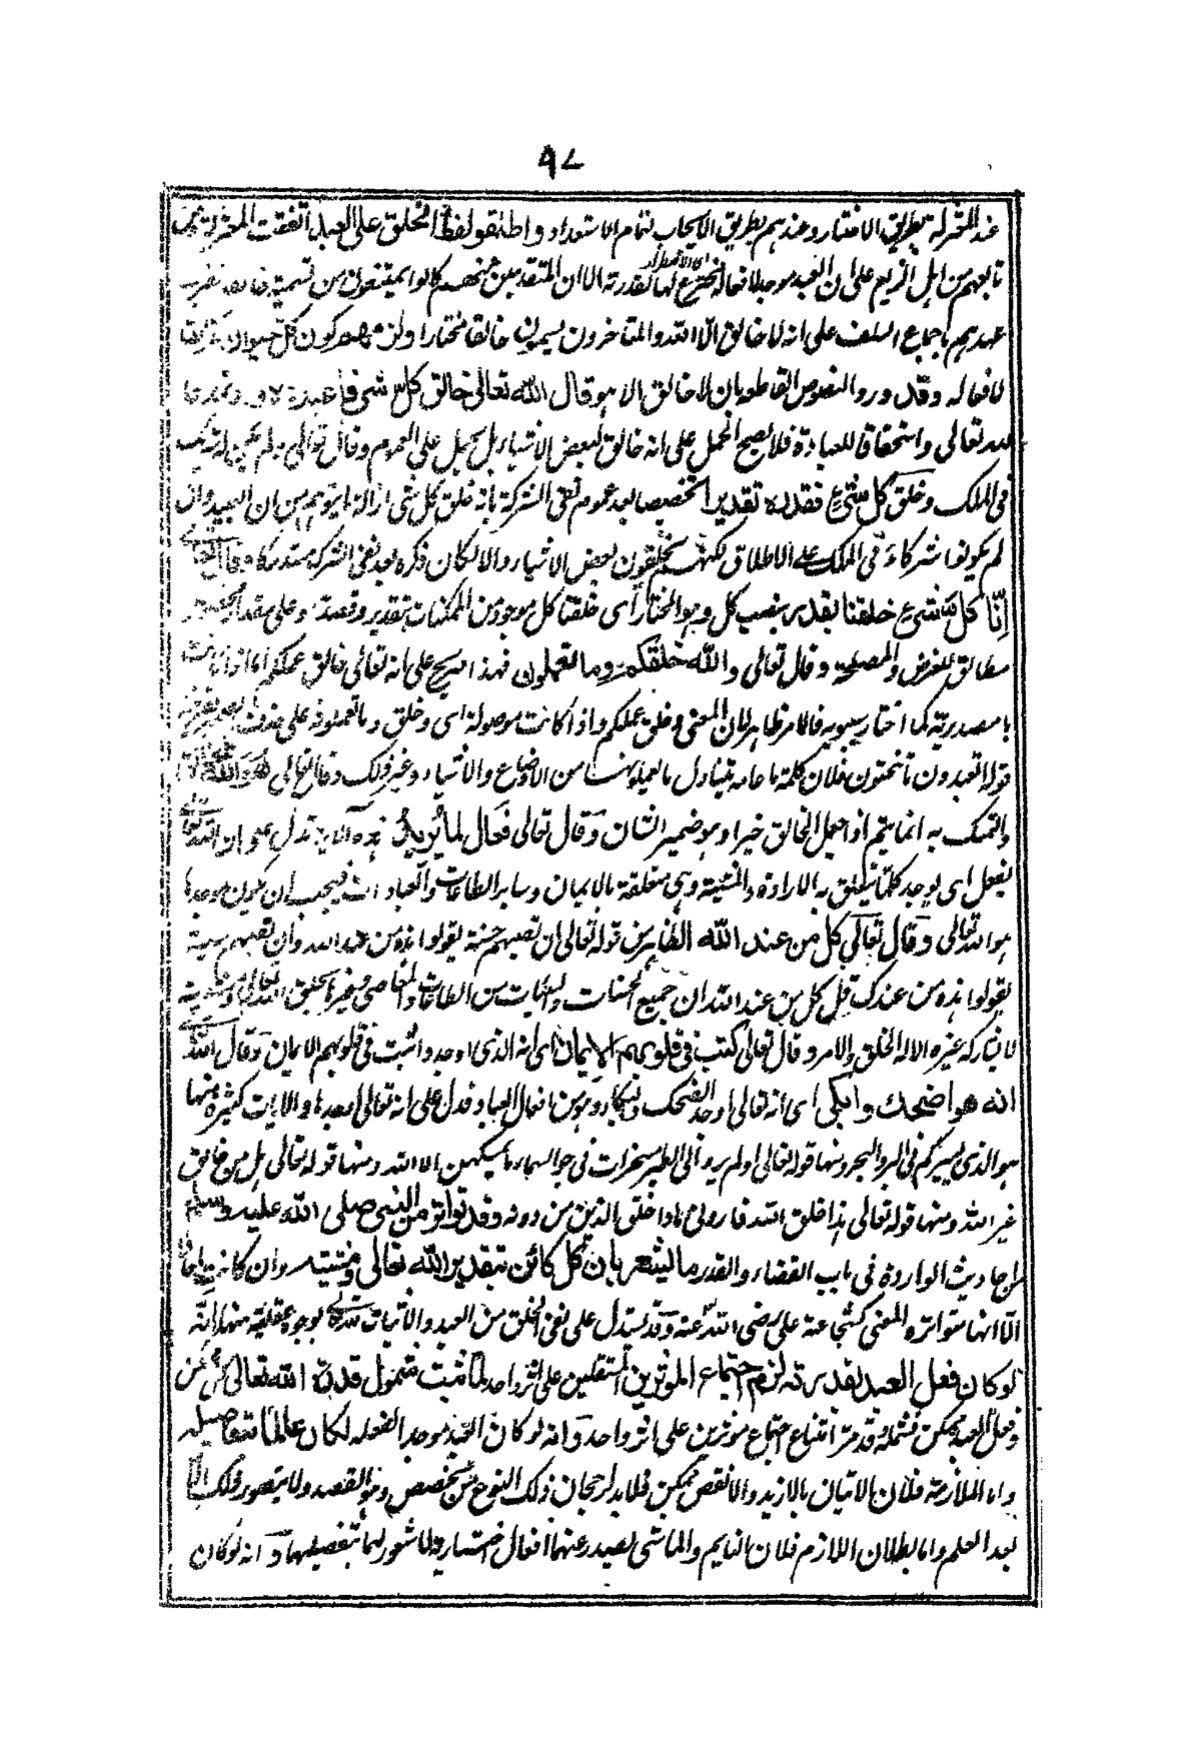 ٩٧
عند المعتزلة بطريق الاختيار وعندهم بطريق الايجاب بتمام الاستعداد واطلقوا لفظ الخلق على العبد اتفقت المعتزلة ومن
تابعهم من اهل الزيغ على ان العبد موجد لافعاله مخترع لها بقدرته الا ان المتقدمين منهم كانوا يمتنعون من تسميته خالقا لقرب
عهدهم باجماع السلف على انه لا خالق الا الله والمتاخرون يسمونه خالقا مختارا ولزمهم كون كل حيوان خالقا
لافعاله وقد ورد النصوص القاطعة بان لا خالق الا هو قال الله تعالى خالق كل شى فاعبدوه
لله تعالى واستحقاقا للعبادة فلا يصح الحمل على انه خالق لبعض الاشياء بل يحمل على العموم وقال تعالى ولم يكن له شريك
فى الملك وخلق كل شىء فقدره تقديرا تخصيصا بعد عموم نفى الشركة بانه خلق كل شى ازالة لما يتوهم من ان العبيد وان
لم يكونوا شركاء فى الملك على الاطلاق لكنهم يخلقون بعض الاشياء والا لكان ذكره بعد نفى الشركة مستدركا وقال تعالى
انا كل شىء خلقناه بقدر بنصب كل وهو المختار اى خلقنا كل موجود من الممكنات بتقدير وقصد وعلى مقدار مخصوص
مطابق للغرض والمصلحة وقال تعالى والله خلقكم وما تعملون فهذا صريح على انه تعالى خالق عملكم اما اذا كانت
ما مصدرية كما اختاره سيبويه فالامر ظاهر لان المعنى وخلق عملكم واذا كانت موصولة اى وخلق ما تعملونه على حذف الضمير بقرينة
قوله اتعبدون ما تنحتون فلان كلمة ما عامة يتناول ما يعملونه من الاوضاع والاشياء وغير ذلك وقال تعالى هو الله الخالق
والتمسك به انما يتم اذا جعل الخالق خبرا وهو ضمير الشان وقال تعالى فعال لما يريد هذه الآية تدل على ان الله تعالى
يفعل اى يوجد كلما يتعلق به الارادة والمشية وهى متعلقة بالايمان وساير الطاعات والعبادات فيجب ان يكون موجدها
هو الله تعالى وقال تعالى كل من عند الله الظاهر من قوله تعالى ان تصبهم حسنة يقولوا هذه من عند الله وان تصبهم سيئة
يقولوا هذه من عندك قل كل من عند الله ان جميع الحسنات والسيات من الطاعات والمعاصى وغيرها بخلق الله تعالى ومشيته
لا يشاركه غيره الا له الخلق والامر وقال تعالى كتب فى قلوبهم الايمان اى انه الذى اوجد واثبت فى قلوبهم الايمان وقال الله تعالى
انه هو اضحك وابكى اى انه تعالى اوجد الضحك والبكاء وهو من افعال العباد فدل على انه تعالى اوجدها والآيات كثيرة منها
هو الذى يسيركم فى البر والبحر ومنها قوله تعالى اولم يروا الى الطير مسخرات فى جو السماء ما يمسكهن الا الله ومنها قوله تعالى هل من خالق
غير الله ومنها قوله تعالى هذا خلق الله فارونى ماذا خلق الذين من دونه وقد تواتر من النبى صلى الله عليه وسلم
من احاديث الواردة فى باب القضاء والقدر ما يشعر بان كل كائن بتقدير الله تعالى ومشيته وان كانت احادا
الا انها متواترة المعنى كشجاعة على رضى الله عنه وقد يستدل على نفى الخلق من العبد والاثبات لله تعالى بوجوه عقلية منها انه
لو كان فعل العبد بقدرته لزم اجتماع المؤثرين المستقلين على اثر واحد لما ثبت شمول قدرة الله تعالى كل ممكن
وفعل العبد ممكن فشمله وقد مر امتناع اجتماع مؤثرين على اثر واحد وانه لو كان العبد موجدا لفعله لكان عالما بتفاصيله
واما الملازمة فلان الاتيان بالازيد والانقص ممكن فلا بد لرجحان ذلك النوع من مخصص وهو القصد ولا يتصور ذلك الا
بعد العلم واما بطلان اللازم فلان النايم والماشى يصدر عنهما افعال اختيارية لا شعور لهما بتفصيلها وانه لو كان